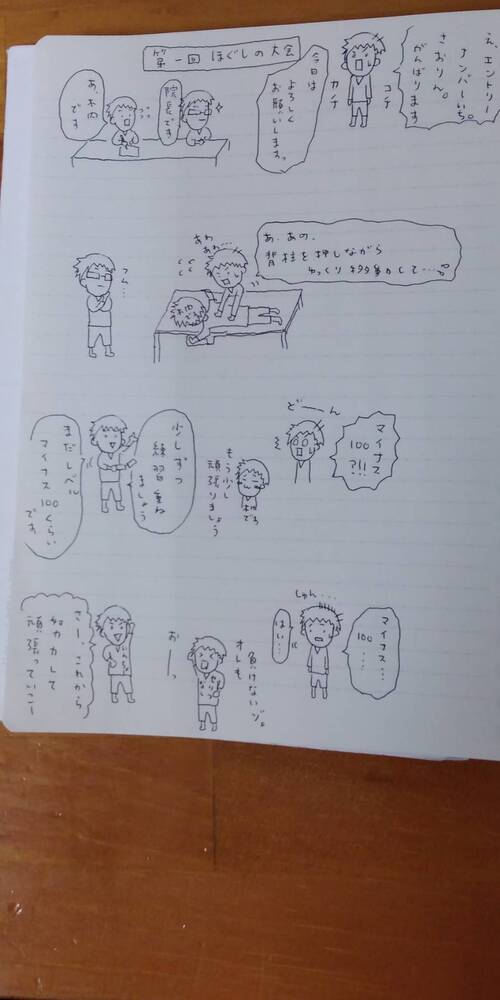 第一回 ほぐしの大会
え、エントリー
ナンバーいち。
さおりん。
がんばります
コチ
カチ
今日は
よろしく
お願いします。
院長です
あ、木内
です
あ、あの、
背柱を押しながら
ゆっくり移動して…。
あわ
あわ…
木内
です
うん…
マイナス
100
?!!
どーーん
もう少し
頑張りましょう
少しずつ
練習重ね
ましょう
まだレベル
マイナス100くらい
です
マイナス…
100……
しゅん…
はい…
負けないゾ。
オレも
おーっ
さー、これから
加力して
頑張っていこー